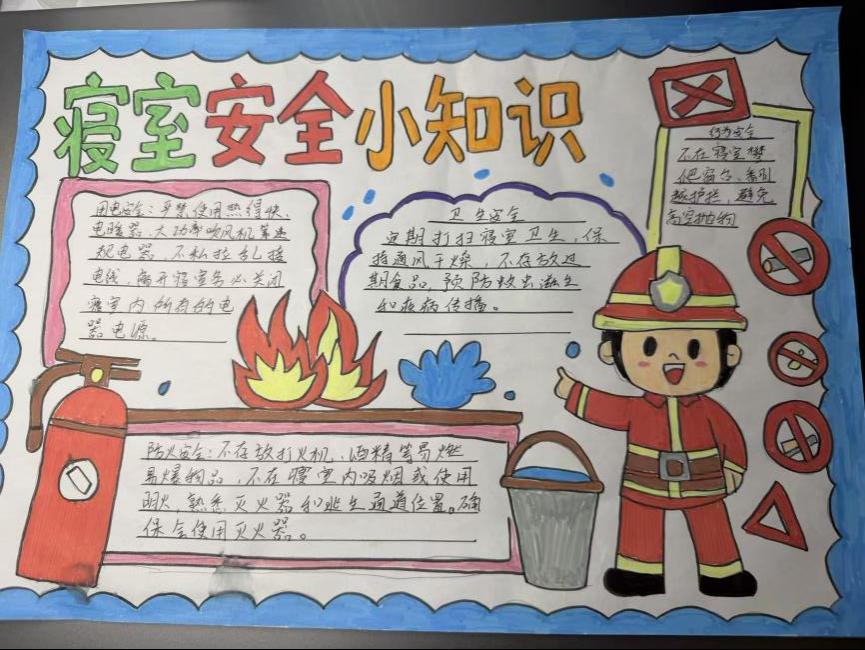 寝室安全小知识
行为安全
不在寝室攀
爬窗台、翻
越护栏，避免
高空抛物
用电安全：严禁使用热得快、
电暖器、大功率吹风机等违
规电器，不私拉乱接
电线，离开寝室务必关闭
寝室内所有的电
器电源。
卫生安全
定期打扫寝室卫生，保
持通风干燥，不存放过
期食品，预防蚊虫滋生
和疾病传播。
防火安全：不存放打火机、酒精等易燃
易爆物品，不在寝室内吸烟或使用
明火，熟悉灭火器和逃生通道位置。确
保会使用灭火器。